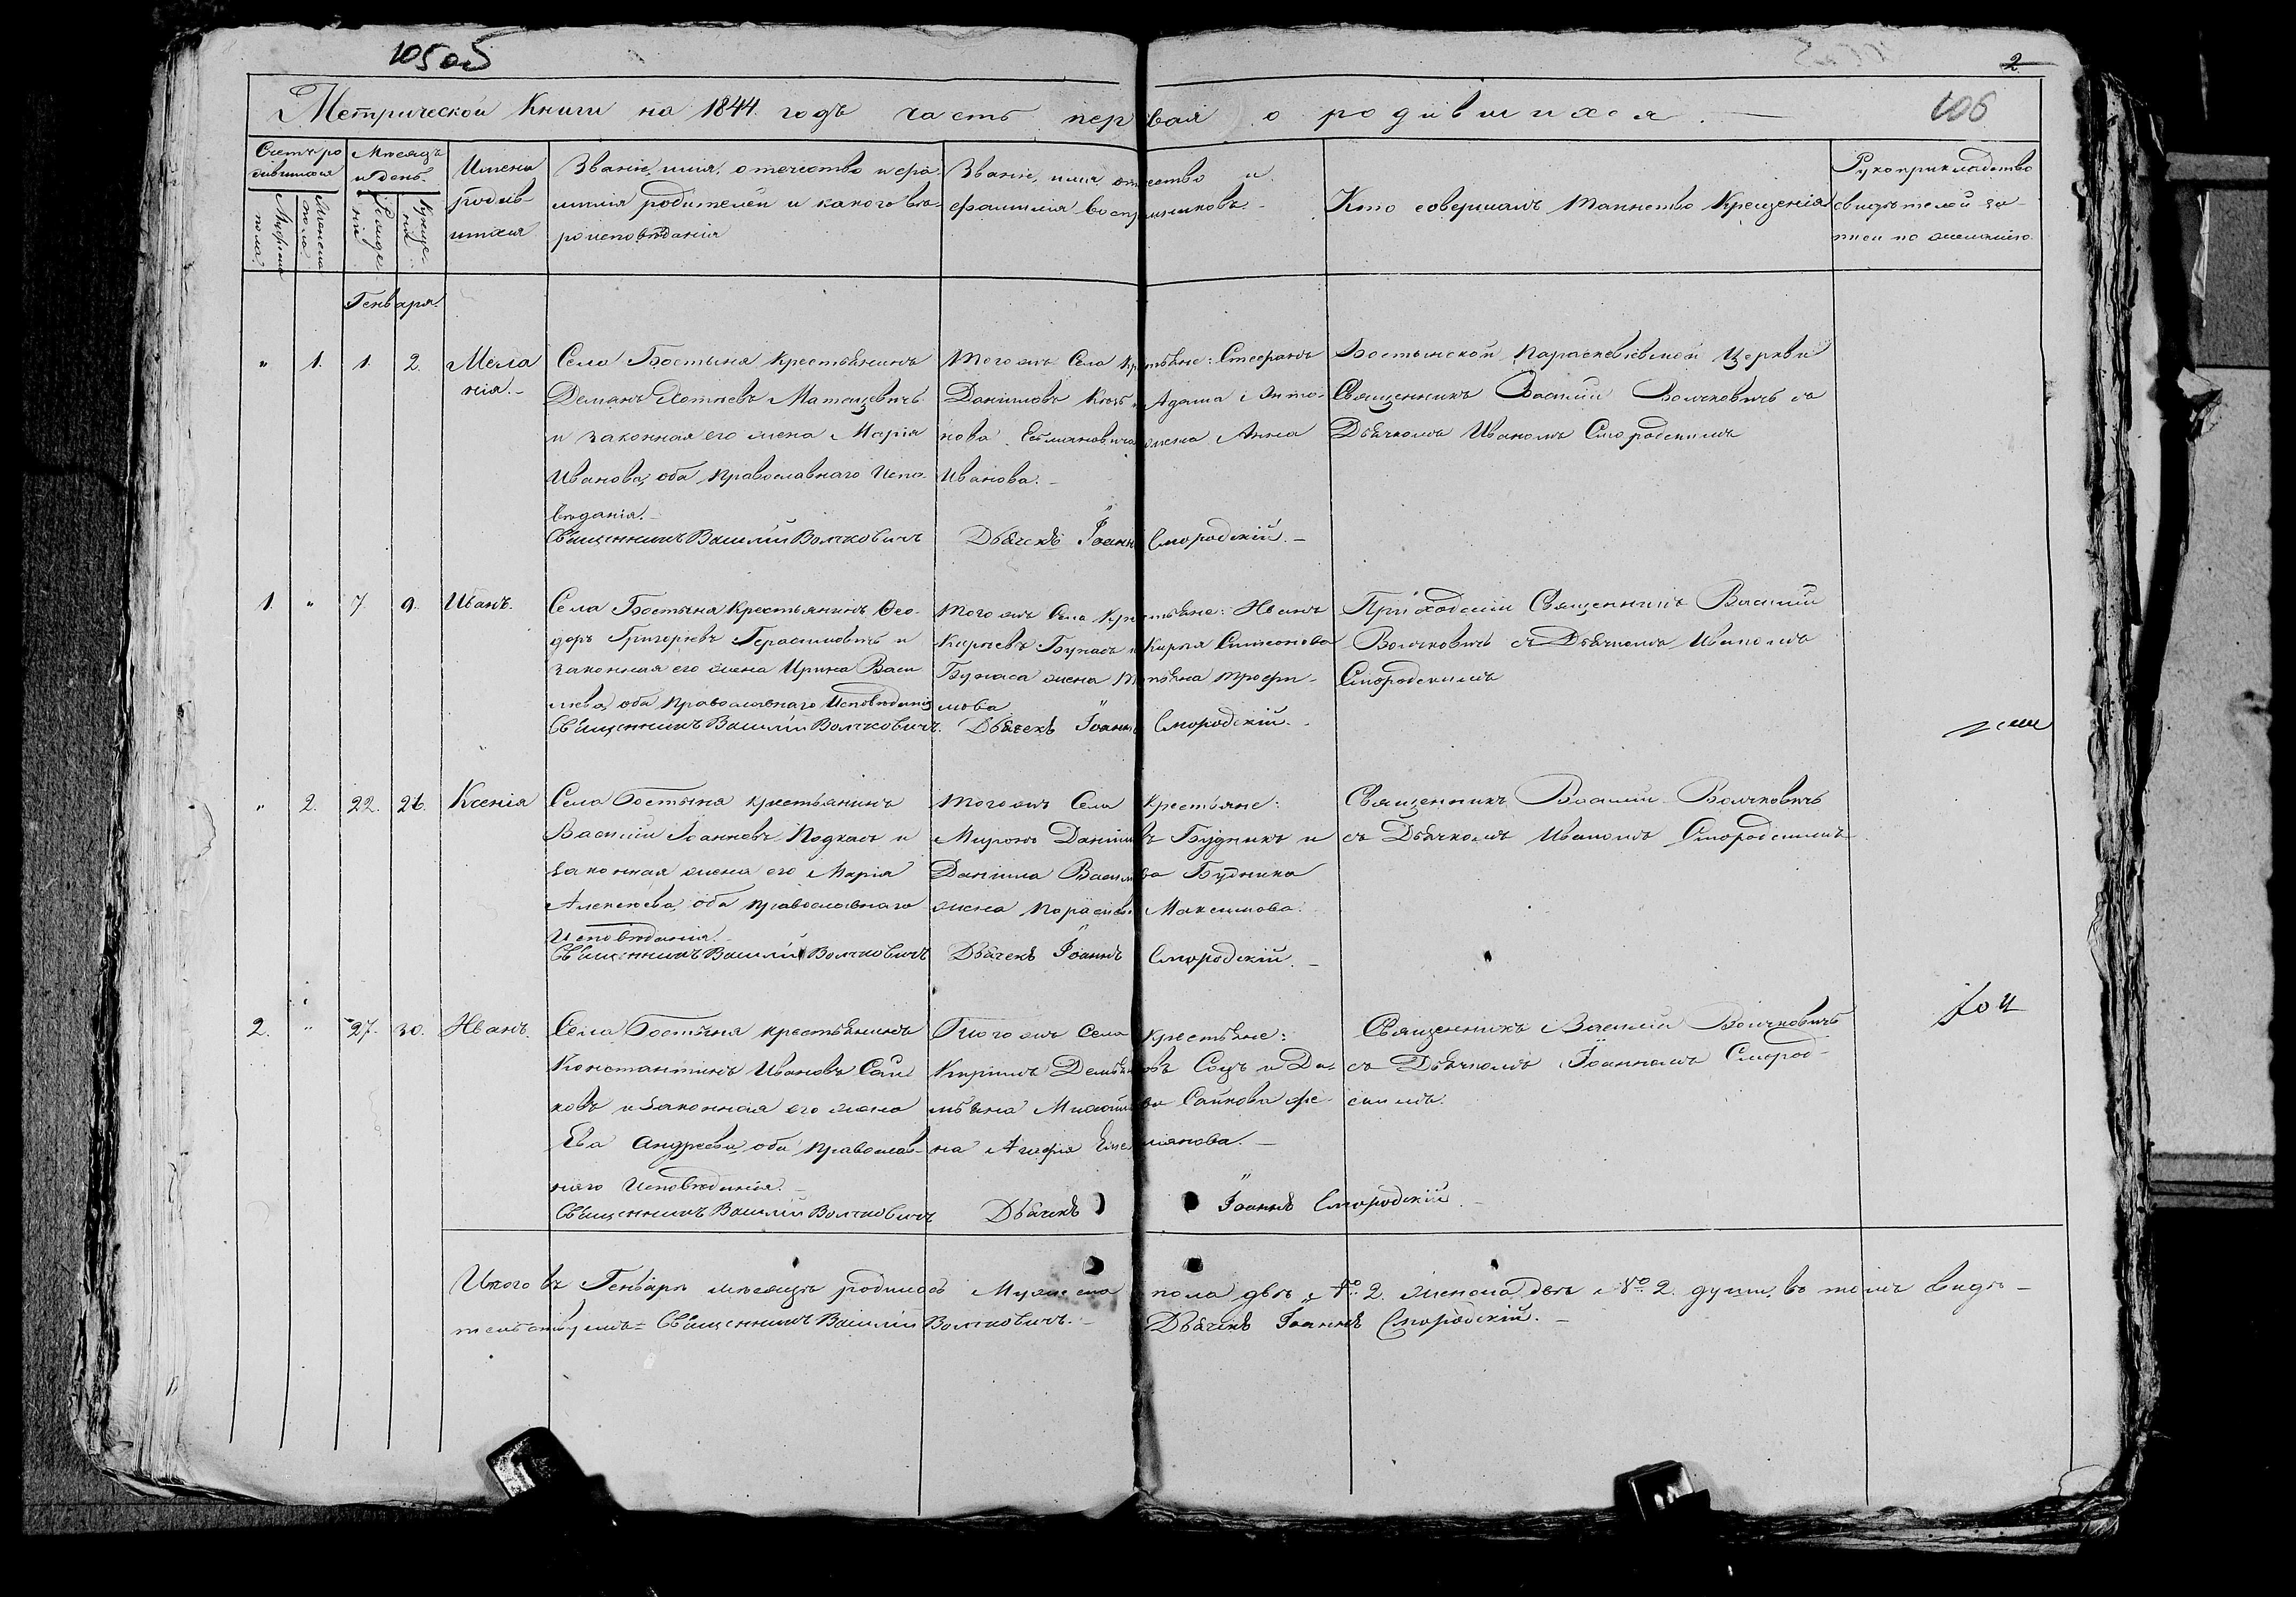 105об
2
Метрической Книги на 1844. годъ часть первая о родившихся. —
106
Счетъ ро
дившихся
Мужеска
пола.
Женска
пола.
Мѣсяцъ
и день.
Рожде
нія
Креще
нія
Имена
родив-
шихся
Званіе, имя, отечество и фа
милія родителей и какого вѣ-
роисповѣданія
Званіе, имя, отчество и
фамилія воспріемниковъ.
Кто совершалъ таинство Крещенія
Рукоприкладство
свидѣтелей за-
писи по желанію.
Генваря.
" 1. 1. 2. Мела
нія.-
Села Бостыня Крестьянинъ
Демянъ Матвцевичъ
и законная его жена Марія
Иванова, оба Православнаго Испо-
вѣданія.-
Священникъ Василій Волчковичъ
Того жъ Села Крестьяне: Стефанъ
Даниловъ и Адама Анто-
нова жена Анна
Иванова.-
Дьячекъ Іоаннъ Смородскій.-
Бостынской Параскевіевской Церкви
Священникъ Василій Волчковичъ съ
Дьячкомъ Иваномъ Смородскимъ
1. " 7. 9. Иванъ.
Села Бостыня Крестьянинъ Ѳео-
доръ Григорьевъ Герасимовичъ и
законная его жена Ирина Васи
льева, оба Православнаго Исповѣданія
Священникъ Василій Волчковичъ.
Того жъ Села Крестьяне: Иванъ
Бунасъ и Симеонова
Бунаса жена Татьяна Трофи-
мова
Дьячекъ Іоаннъ Смородскій.-
Приходскій Священникъ Василій
Волчковичъ съ Дьячкомъ Иваномъ
Смородскимъ
" 2. 22. 26. Ксенія
Села Бостыня Крестьянинъ
Василій Іоанновъ и
законная жена его Марія
Алексѣева, оба Православнаго
Исповѣданія.-
Священникъ Василій Волчковичъ
Того жъ Села Крестьяне:
Миронъ Даниловъ Будникъ и
Даніила Васильева Будника
жена Параскева Максимова.
Дьячекъ Іоаннъ Смородскій.-
Священникъ Василій Волчковичъ
съ Дьячкомъ Иваномъ Смородскимъ
2. " 27. 30. Иванъ.
Села Бостыня крестьянинъ
Константинъ Ивановъ Сай
ковъ и законная его жена
Ева Андреева, оба Православ-
наго Исповѣданія.-
Священникъ Василій Волчковичъ
Того жъ Села Крестьяне:
Кирилъ Демьяновъ Соцъ и Де-
мьяна Михайлова Сайкова же
на Агафія Емельянова.-
Дьячекъ Іоаннъ Смородскій.-
Священникъ Василій Волчковичъ
съ Дьячкомъ Іоанномъ Смород-
скимъ.
Итого въ Генварѣ мѣсяцѣ родилось Мужеска пола двѣ № 2. женска двѣ № 2. души, въ томъ видѣ-
тельствуемъ = Священникъ Василій Волчковичъ.- Дьячекъ Іоаннъ Смородскій.-